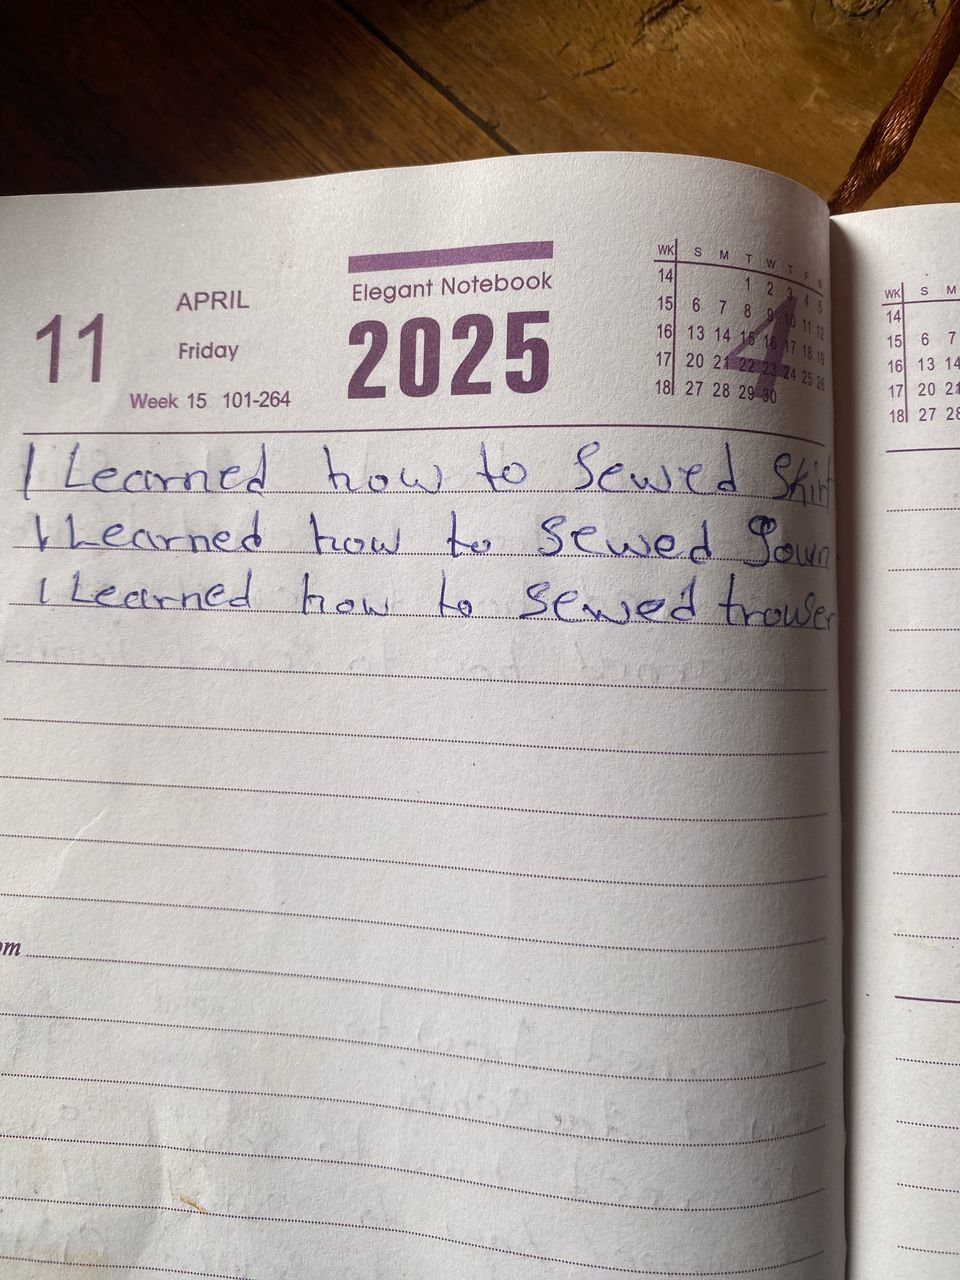 APRIL
11
Friday
Week 15 101-264
Elegant Notebook
2025
WK S M T W T F S
14 1 2 3 4 5
15 6 7 8 9 10 11 12
16 13 14 15 16 17 18 19
17 20 21 22 23 24 25 26
18 27 28 29 30
4
I Learned how to Sewed Skirt
I Learned how to Sewed Gown
I Learned how to Sewed trouser
WK S M
14
15 6 7
16 13 14
17 20 21
18 27 28